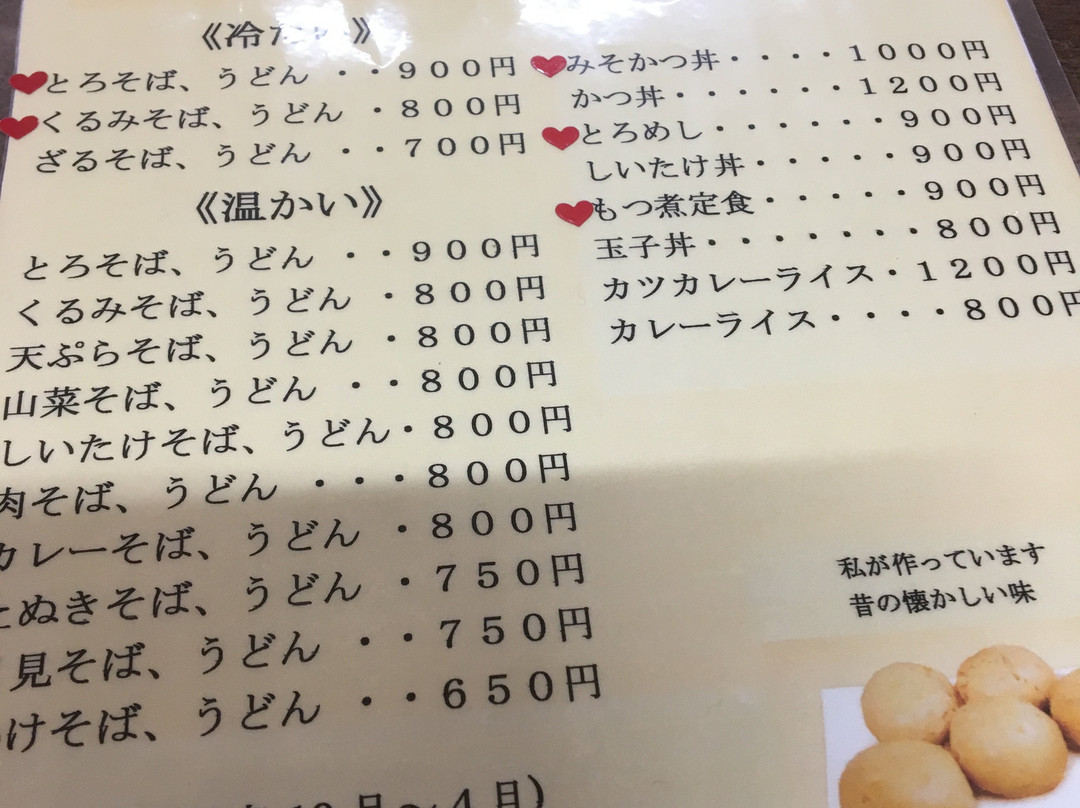 《冷たい》
とろそば、うどん ・・９００円
くるみそば、うどん ・８００円
ざるそば、うどん ・・７００円
《温かい》
とろそば、うどん ・・９００円
くるみそば、うどん ・８００円
天ぷらそば、うどん ・８００円
山菜そば、うどん ・・８００円
しいたけそば、うどん・８００円
肉そば、うどん ・・・８００円
カレーそば、うどん ・８００円
たぬきそば、うどん ・７５０円
見そば、うどん ・・７５０円
けそば、うどん ・・６５０円
みそかつ丼・・・・１０００円
かつ丼・・・・・・１２００円
とろめし・・・・・・９００円
しいたけ丼・・・・・９００円
もつ煮定食・・・・・９００円
玉子丼・・・・・・・８００円
カツカレーライス・１２００円
カレーライス・・・・８００円
私が作っています
昔の懐かしい味
月～４月）